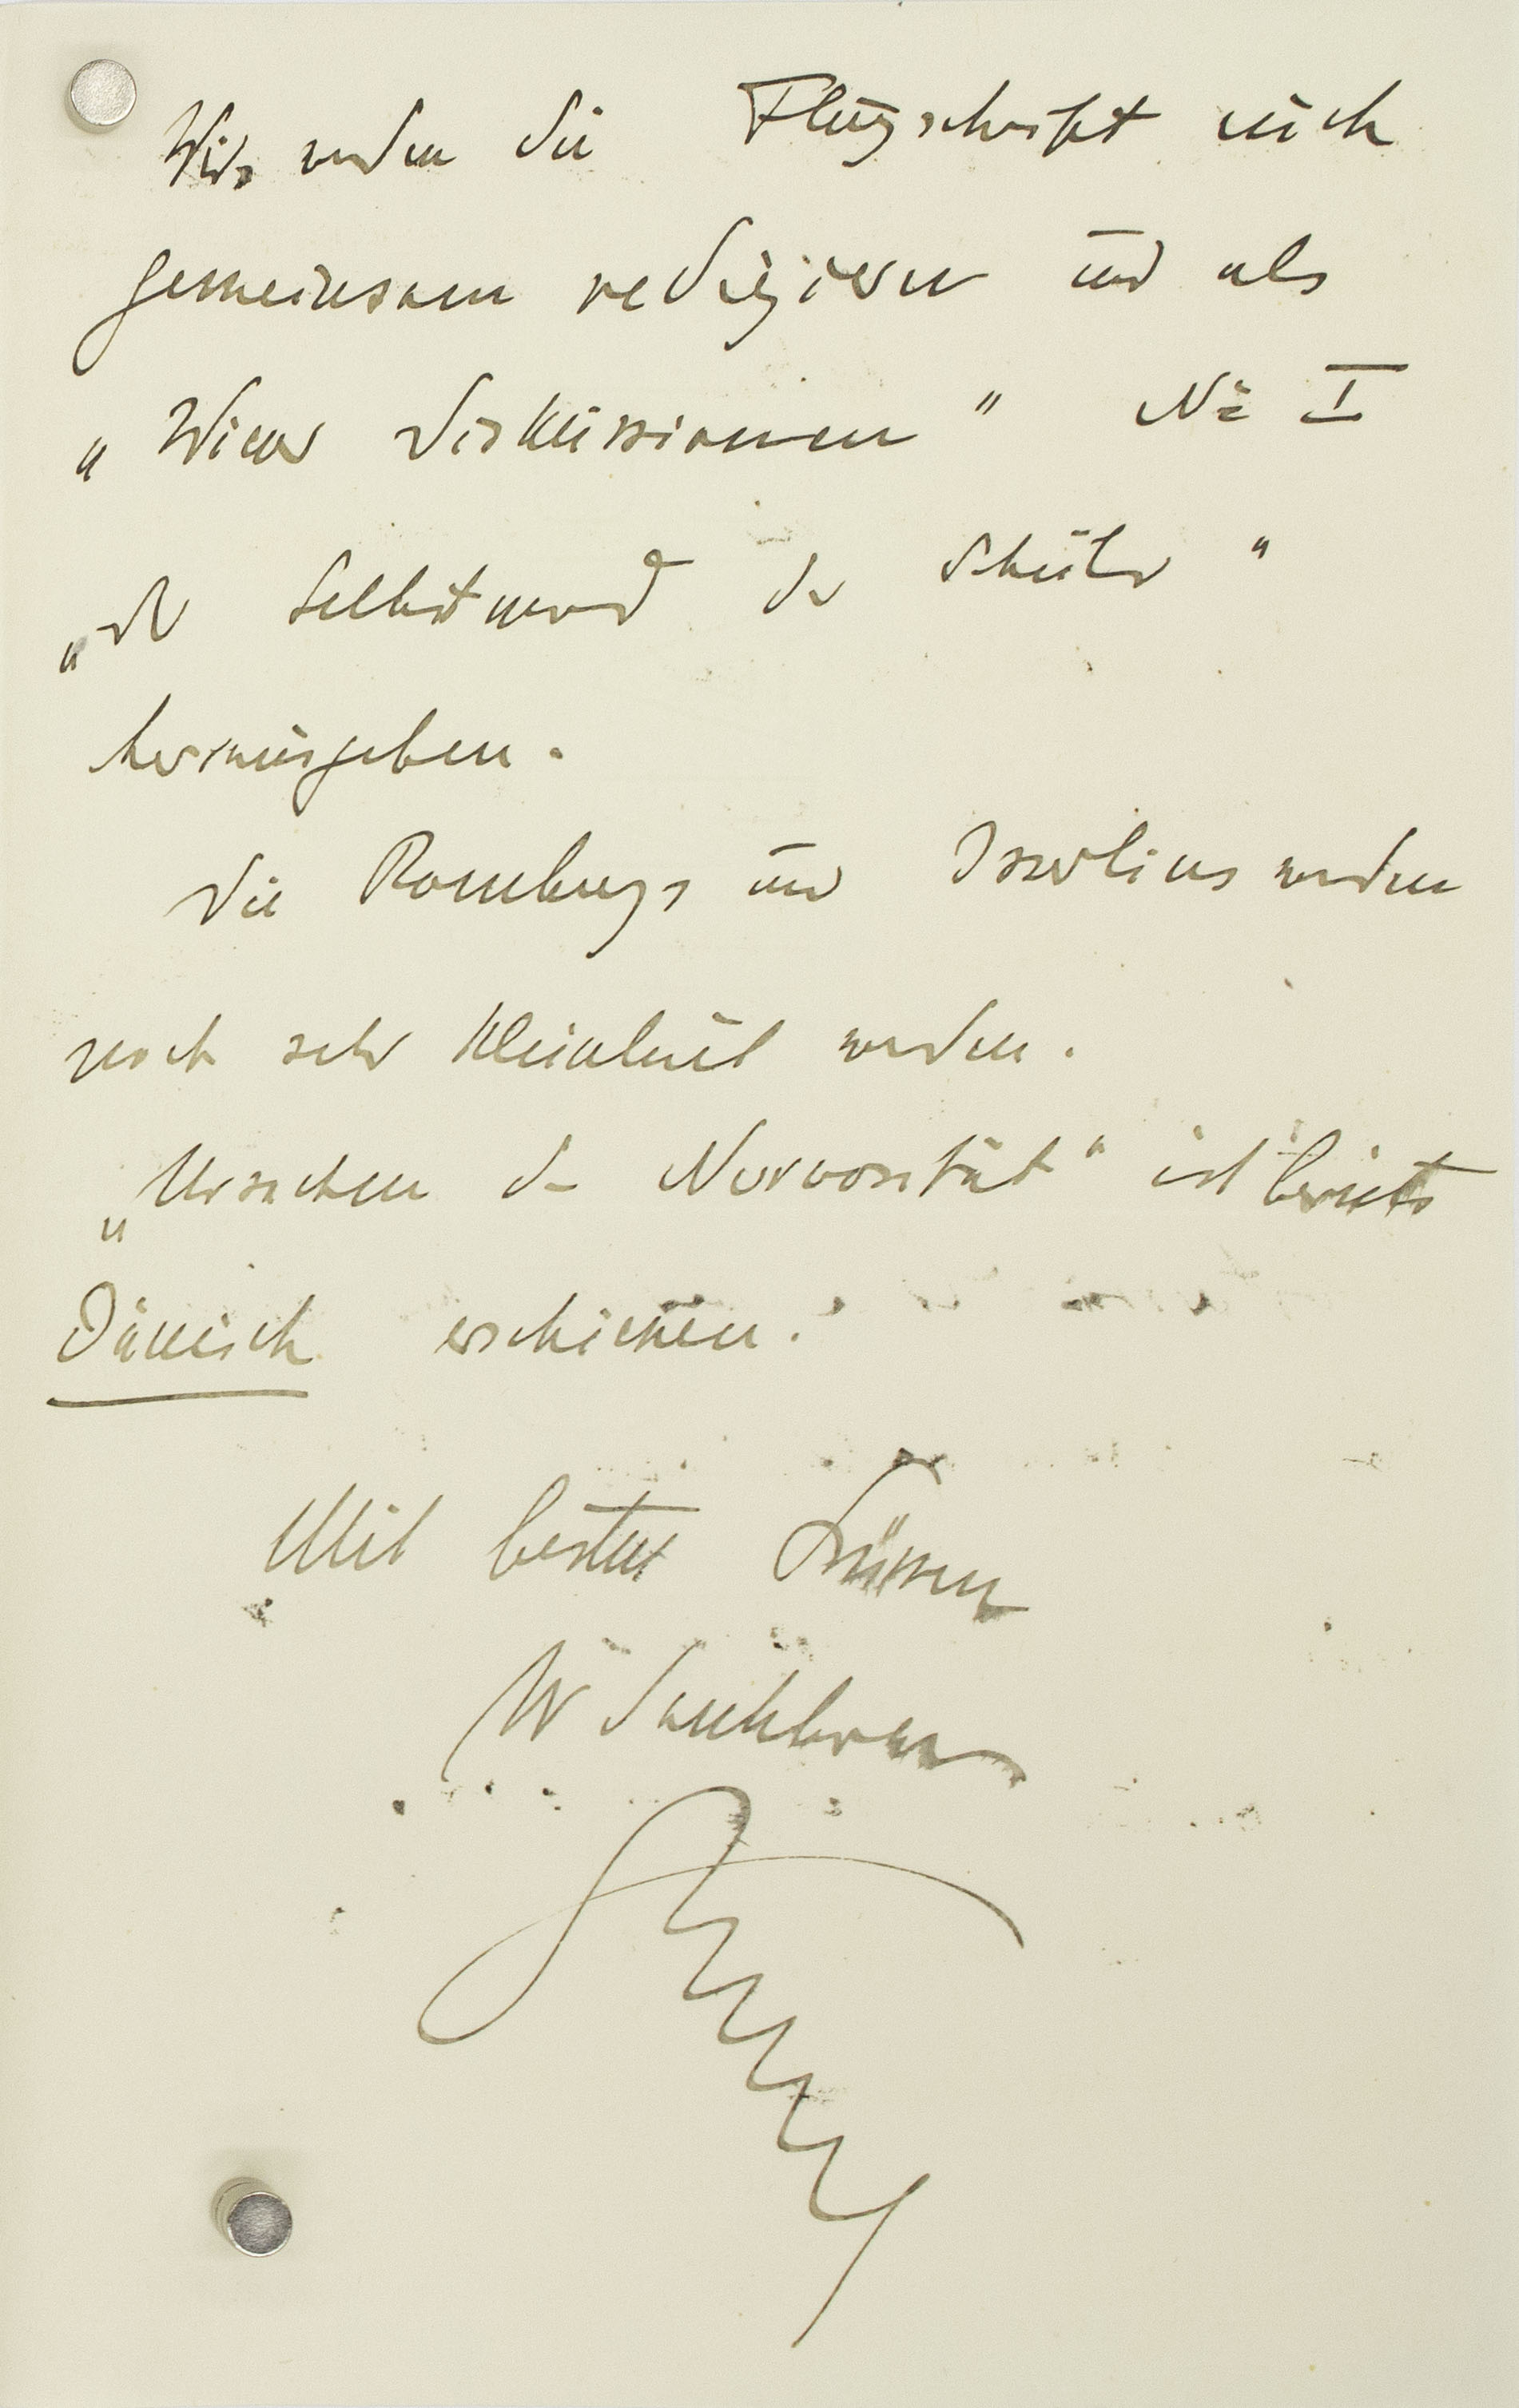 Wir werden die Flugschrift auch
gemeinsam redigieren und als
„Wiener Diskussionen" No I
„Der Selbstmord der Schüler"
herausgeben.
Die Rombergs und Isserlins werden
noch sehr kleinlaut werden.
„Ursachen der Nervosität" ist bereits
Dänisch erschienen.
Mit besten Grüssen
W Stekel